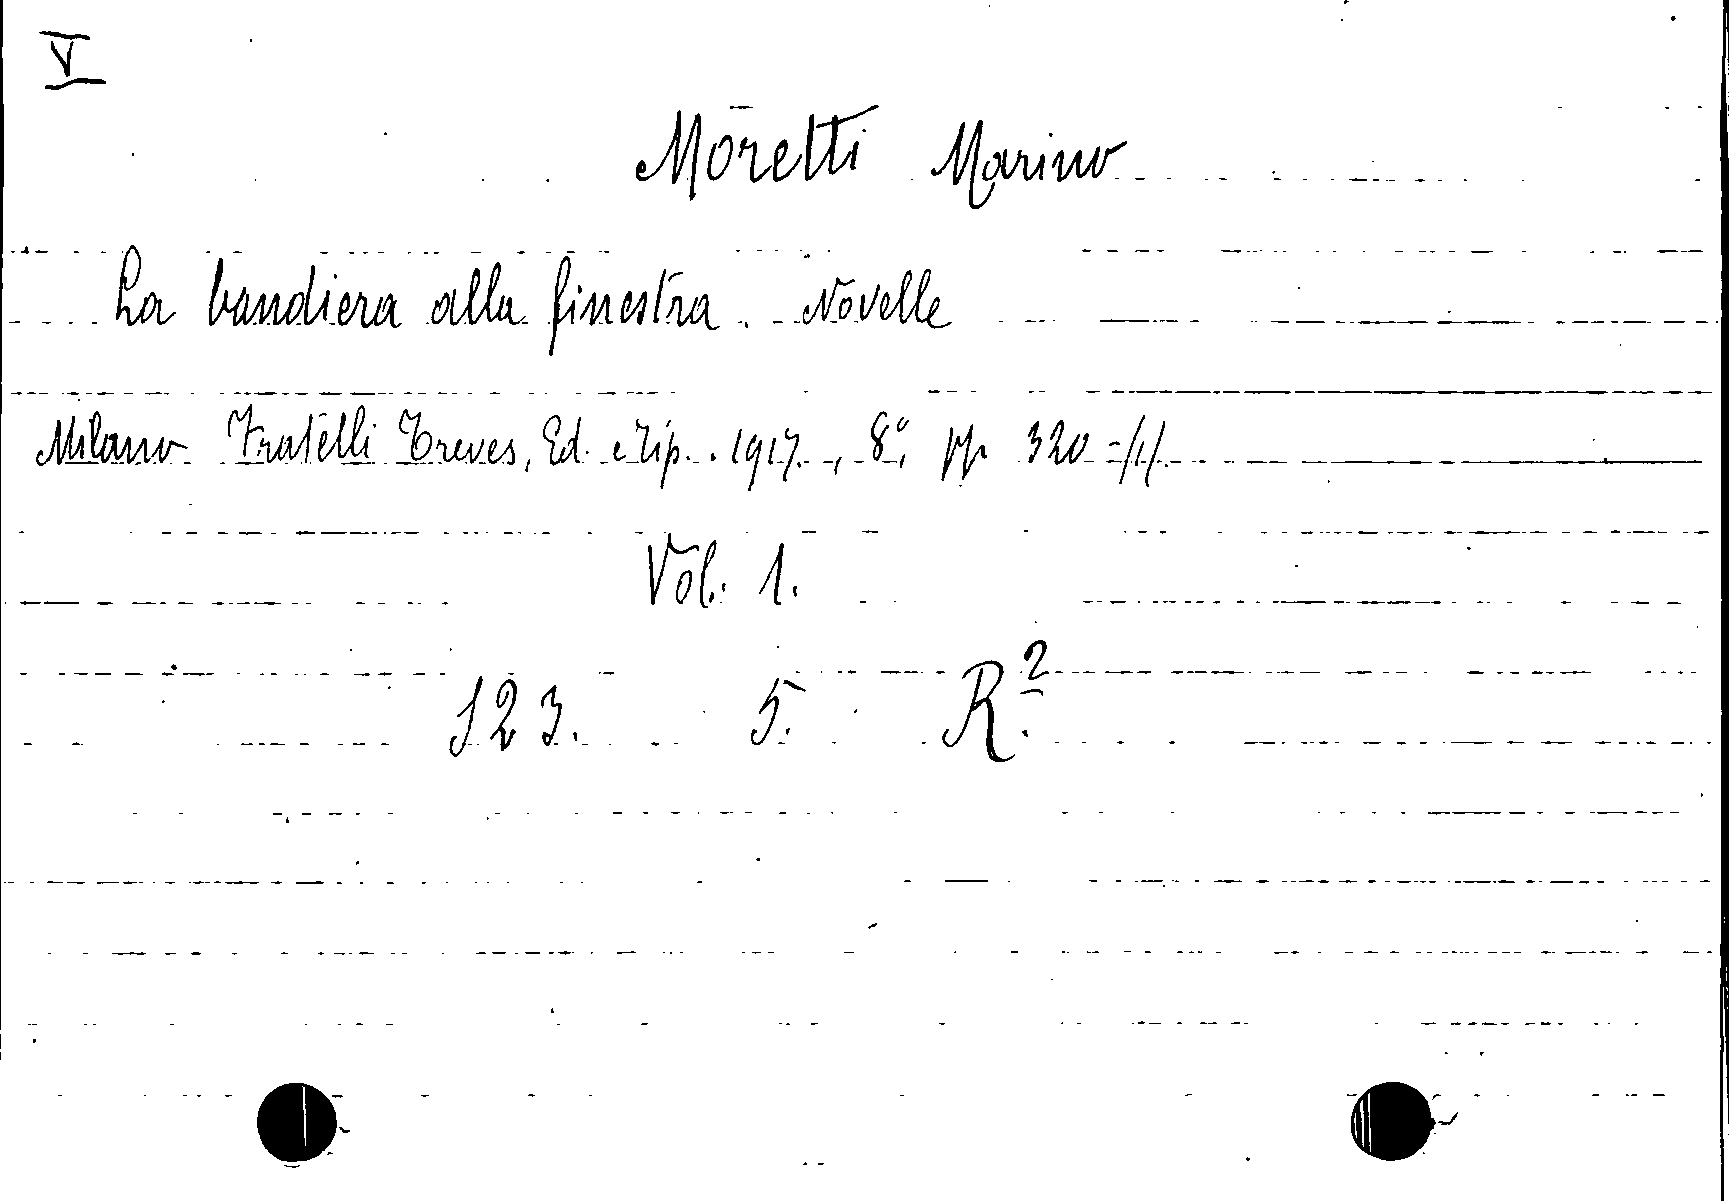 V
Moretti Marino
La bandiera alla finestra. Novelle
Milano Fratelli Treves, Ed. e Tip. . 1917. , 8°, pp. 320 =/1/.
Vol. 1.
123. 5. R.²